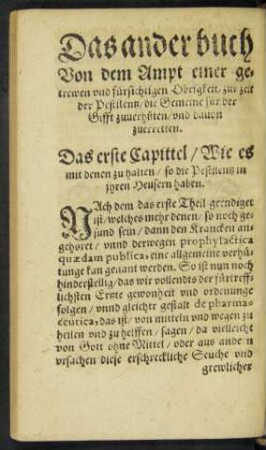 Das ander buch
Von dem Ampt einer ge-
trewen vnd fürsichtigen Obrigkeit / zur zeit
der Pestilentz / die Gemeine für der
Gifft zuuerhüten / vnd dauon
zuerretten.
Das erste Capittel / Wie es
mit denen zu halten / so die Pestilentz in
jhren Heusern haben.
NAch dem das erste Theil geendiget
ist / welches mehr denen / so noch ge-
sund sein / dann den Krancken an-
gehöret / vnnd derwegen prophylactica
quædam publica, eine allgemeine verhü-
tunge kan genant werden. So ist nun noch
hinderstellig / das wir vollendts der fürtreff-
lichsten Erste gewonheit vnd ordenunge
folgen / vnnd gleicher gestalt de pharma-
ceutica, das ist / von mitteln vnd wegen zu
heilen vnd zu helffen / sagen / da vielleicht
von Gott ohne Mittel / oder aus ande n
vrsachen diese erschreckliche Seuche vnd
grewlicher